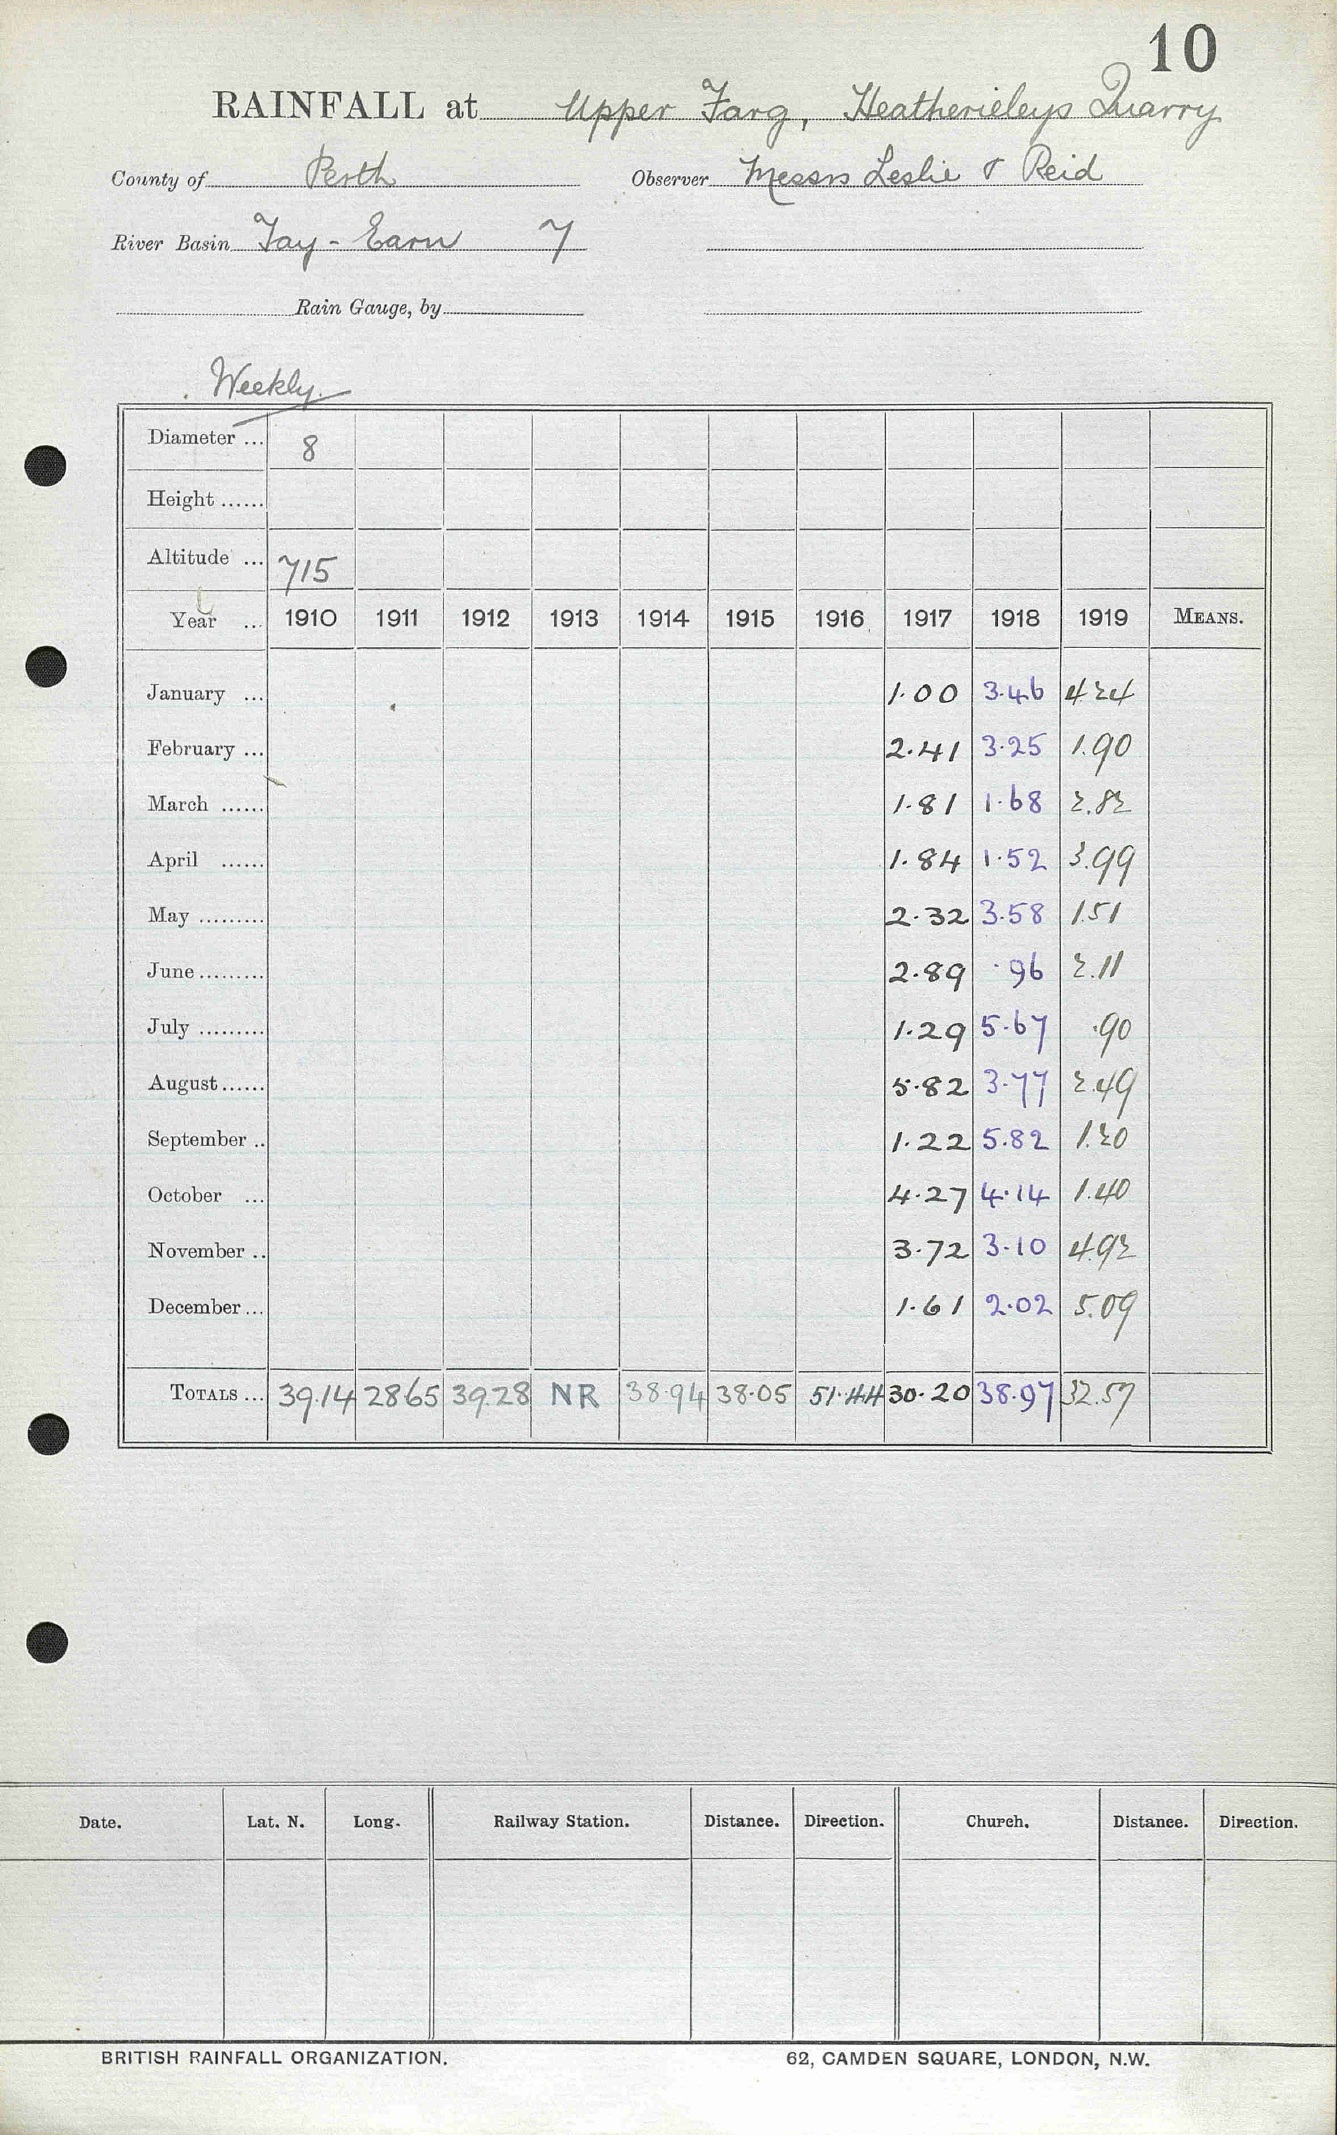 10
RAINFALL at Upper Farg, Heatherieleys Quarry
County of Perth Observer Messrs Leslie & Reid
River Basin Tay - Earn 7
Rain Gauge, by
Weekly.
Diameter ... 8
Height ......
Altitude ... 715
Year ... 1910 1911 1912 1913 1914 1915 1916 1917 1918 1919 MEANS.
January ... 1.00 3.46 4.24
February ... 2.41 3.25 1.90
March ...... 1.81 1.68 2.82
April ...... 1.84 1.52 3.99
May ......... 2.32 3.58 1.51
June ......... 2.89 .96 2.11
July ......... 1.29 5.67 .90
August ...... 5.82 3.77 2.49
September .. 1.22 5.82 1.20
October ... 4.27 4.14 1.40
November .. 3.72 3.10 4.92
December ... 1.61 2.02 5.09
TOTALS ... 39.14 28.65 39.28 NR 38.94 38.05 51.44 30.20 38.97 32.57
Date. Lat. N. Long. Railway Station. Distance. Direction. Church. Distance. Direction.
BRITISH RAINFALL ORGANIZATION. 62, CAMDEN SQUARE, LONDON, N.W.